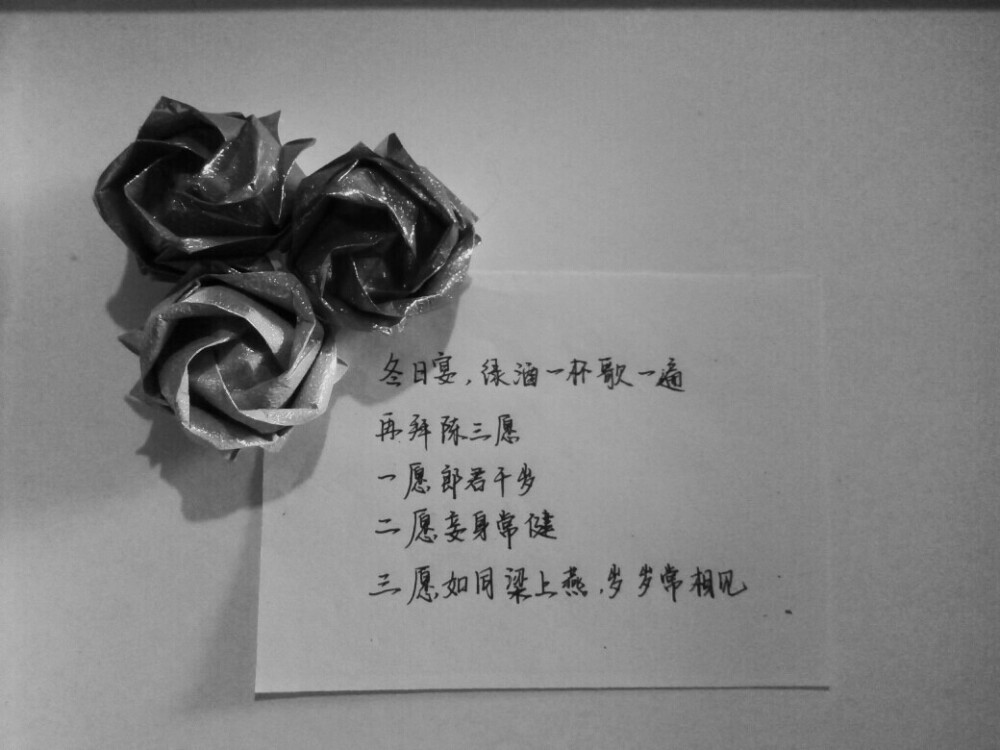 冬日宴，绿酒一杯歌一遍
再拜陈三愿
一愿郎君千岁
二愿妾身常健
三愿如同梁上燕，岁岁常相见